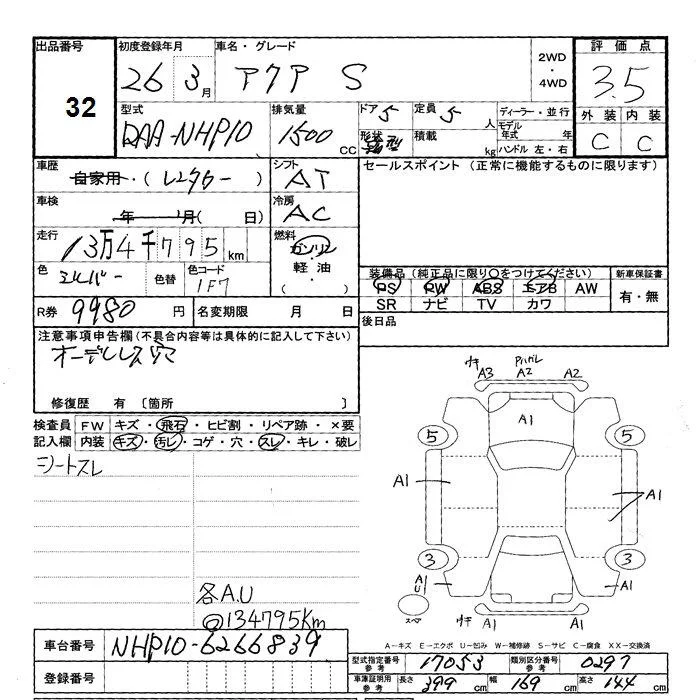 出品番号 初度登録年月 車名・グレード 2WD・4WD 評価点
32 26 3月 アクア S 3.5
型式 排気量 ドア 5 定員 5人 ディーラー・並行 外装 内装
DAA-NHP10 1500CC 形状 箱型 積載 kg モデル年式 年 C C
ハンドル 左・右
車歴 自家用・(レンタカー) シフト AT セールスポイント (正常に機能するものに限ります)
車検 年 月( 日) 冷房 AC
走行 13万4千795km 燃料 ガソリン・軽油・( )
色 シルバー 色替 色コード 1F7
装備品(純正品に限り○をつけてください) 新車保証書
PS PW ABS エアB AW 有・無
SR ナビ TV カワ
R券 9980円 名変期限 月 日 後日品
注意事項申告欄(不具合内容等は具体的に記入して下さい)
オーデレス穴
修復歴 有 〔箇所 〕
検査員 FW キズ・飛石・ヒビ割・リペア跡・×要
記入欄 内装 キズ・汚レ・コゲ・穴・スレ・キレ・破レ
シートスレ
各A.U
@134795Km
ウキ
A3 A2 A2
A1
5 5
A1 A1
3 3
AU A1
スペア ウキ A1
A-キズ E-エクボ U-凹み W-補修跡 S-サビ C-腐食 XX-交換済
車台番号 NHP10-6266839
登録番号
型式指定番号参考 17053 類別区分番号参考 0297
車庫証明用参考 長さ 399cm 幅 169cm 高さ 144cm